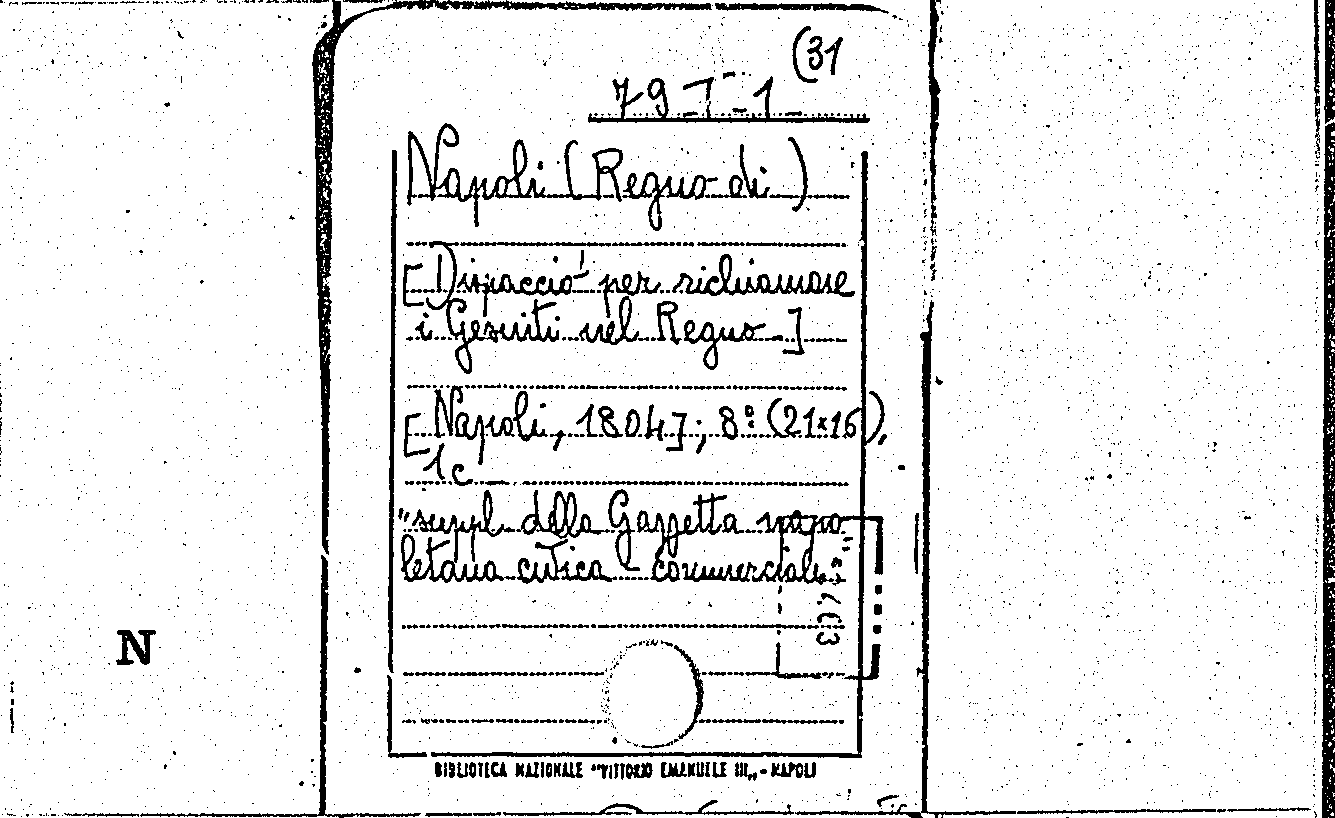 (31
79-I-1
Napoli (Regno di)
[Dispaccio per richiamare
i Gesuiti nel Regno]
[Napoli, 1804]; 8º (21x16),
1c
"suppl. della Gazzetta napo
letana civica - commerciale"
N
BIBLIOTECA NAZIONALE "VITTORIO EMANUELE III„ - NAPOLI